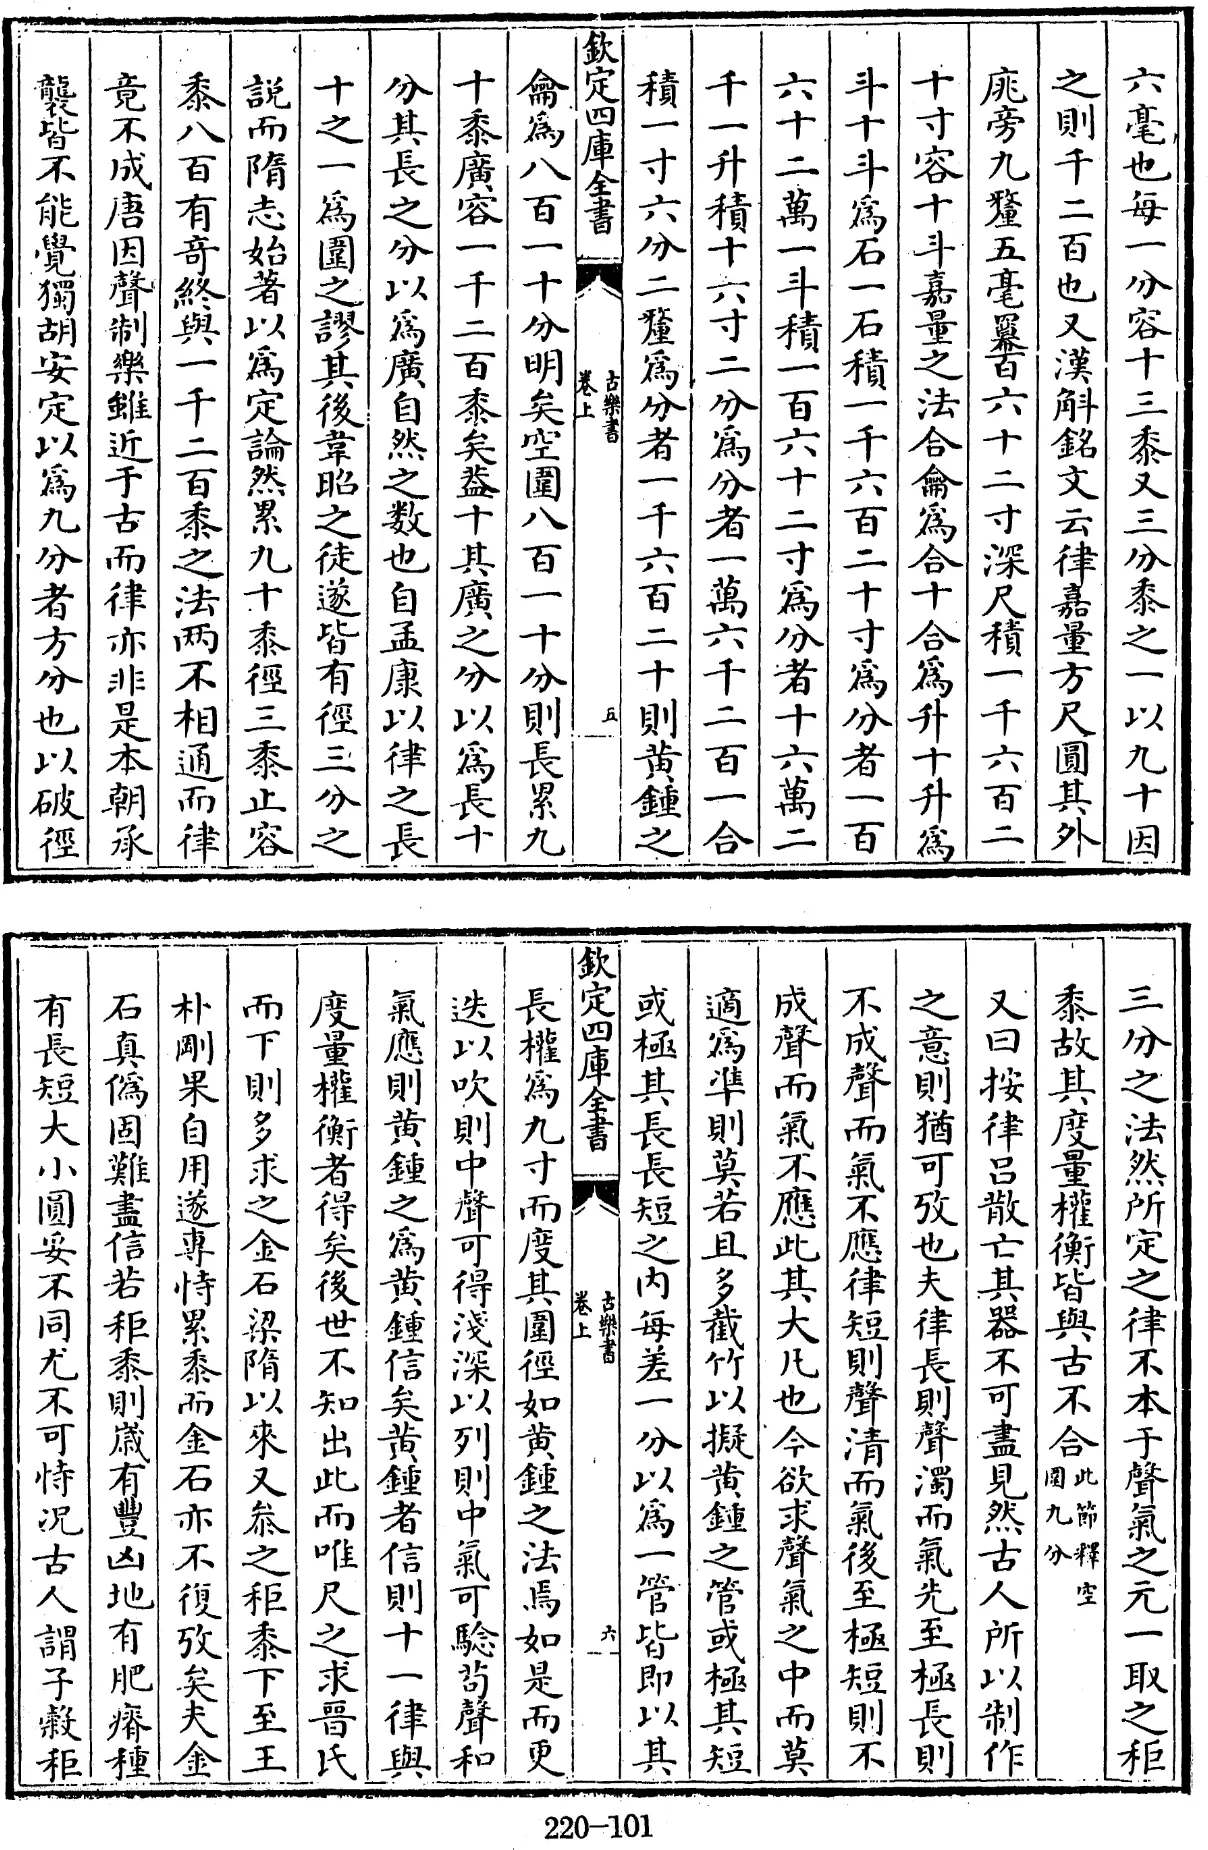 六毫也每一分容十三黍又三分黍之一以九十因
之則千二百也又漢斛銘文云律嘉量方尺圓其外
庣旁九釐五毫冪百六十二寸深尺積一千六百二
十寸容十斗嘉量之法合龠爲合十合爲升十升爲
斗十斗爲石一石積一千六百二十寸爲分者一百
六十二萬一斗積一百六十二寸爲分者十六萬二
千一升積十六寸二分爲分者一萬六千二百一合
積一寸六分二釐爲分者一千六百二十則黄鍾之
欽定四庫全書
古樂書
卷上
五
龠爲八百一十分明矣空圍八百一十分則長累九
十黍廣容一千二百黍矣葢十其廣之分以爲長十
分其長之分以爲廣自然之数也自孟康以律之長
十之一爲圍之謬其後韋昭之徒遂皆有徑三分之
説而隋志始著以爲定論然累九十黍徑三黍止容
黍八百有奇終與一千二百黍之法两不相通而律
竟不成唐因聲制樂雖近于古而律亦非是本朝承
襲皆不能覺獨胡安定以爲九分者方分也以破徑
三分之法然所定之律不本于聲氣之元一取之秬
黍故其度量權衡皆與古不合此節釋空
圍九分
又曰按律吕散亡其器不可盡見然古人所以制作
之意則猶可攷也夫律長則聲濁而氣先至極長則
不成聲而氣不應律短則聲清而氣後至極短則不
成聲而氣不應此其大凡也今欲求聲氣之中而莫
適爲準則莫若且多截竹以擬黄鍾之管或極其短
或極其長長短之内每差一分以爲一管皆即以其
欽定四庫全書
古樂書
卷上
六
長權爲九寸而度其圍徑如黄鍾之法焉如是而更
迭以吹則中聲可得淺深以列則中氣可驗苟聲和
氣應則黄鍾之爲黄鍾信矣黄鍾者信則十一律與
度量權衡者得矣後世不知出此而唯尺之求晉氏
而下則多求之金石梁隋以來又叅之秬黍下至王
朴剛果自用遂專恃累黍而金石亦不復攷矣夫金
石真僞固難盡信若秬黍則歳有豐凶地有肥瘠種
有長短大小圓妥不同尤不可恃况古人謂子榖秬
220-101